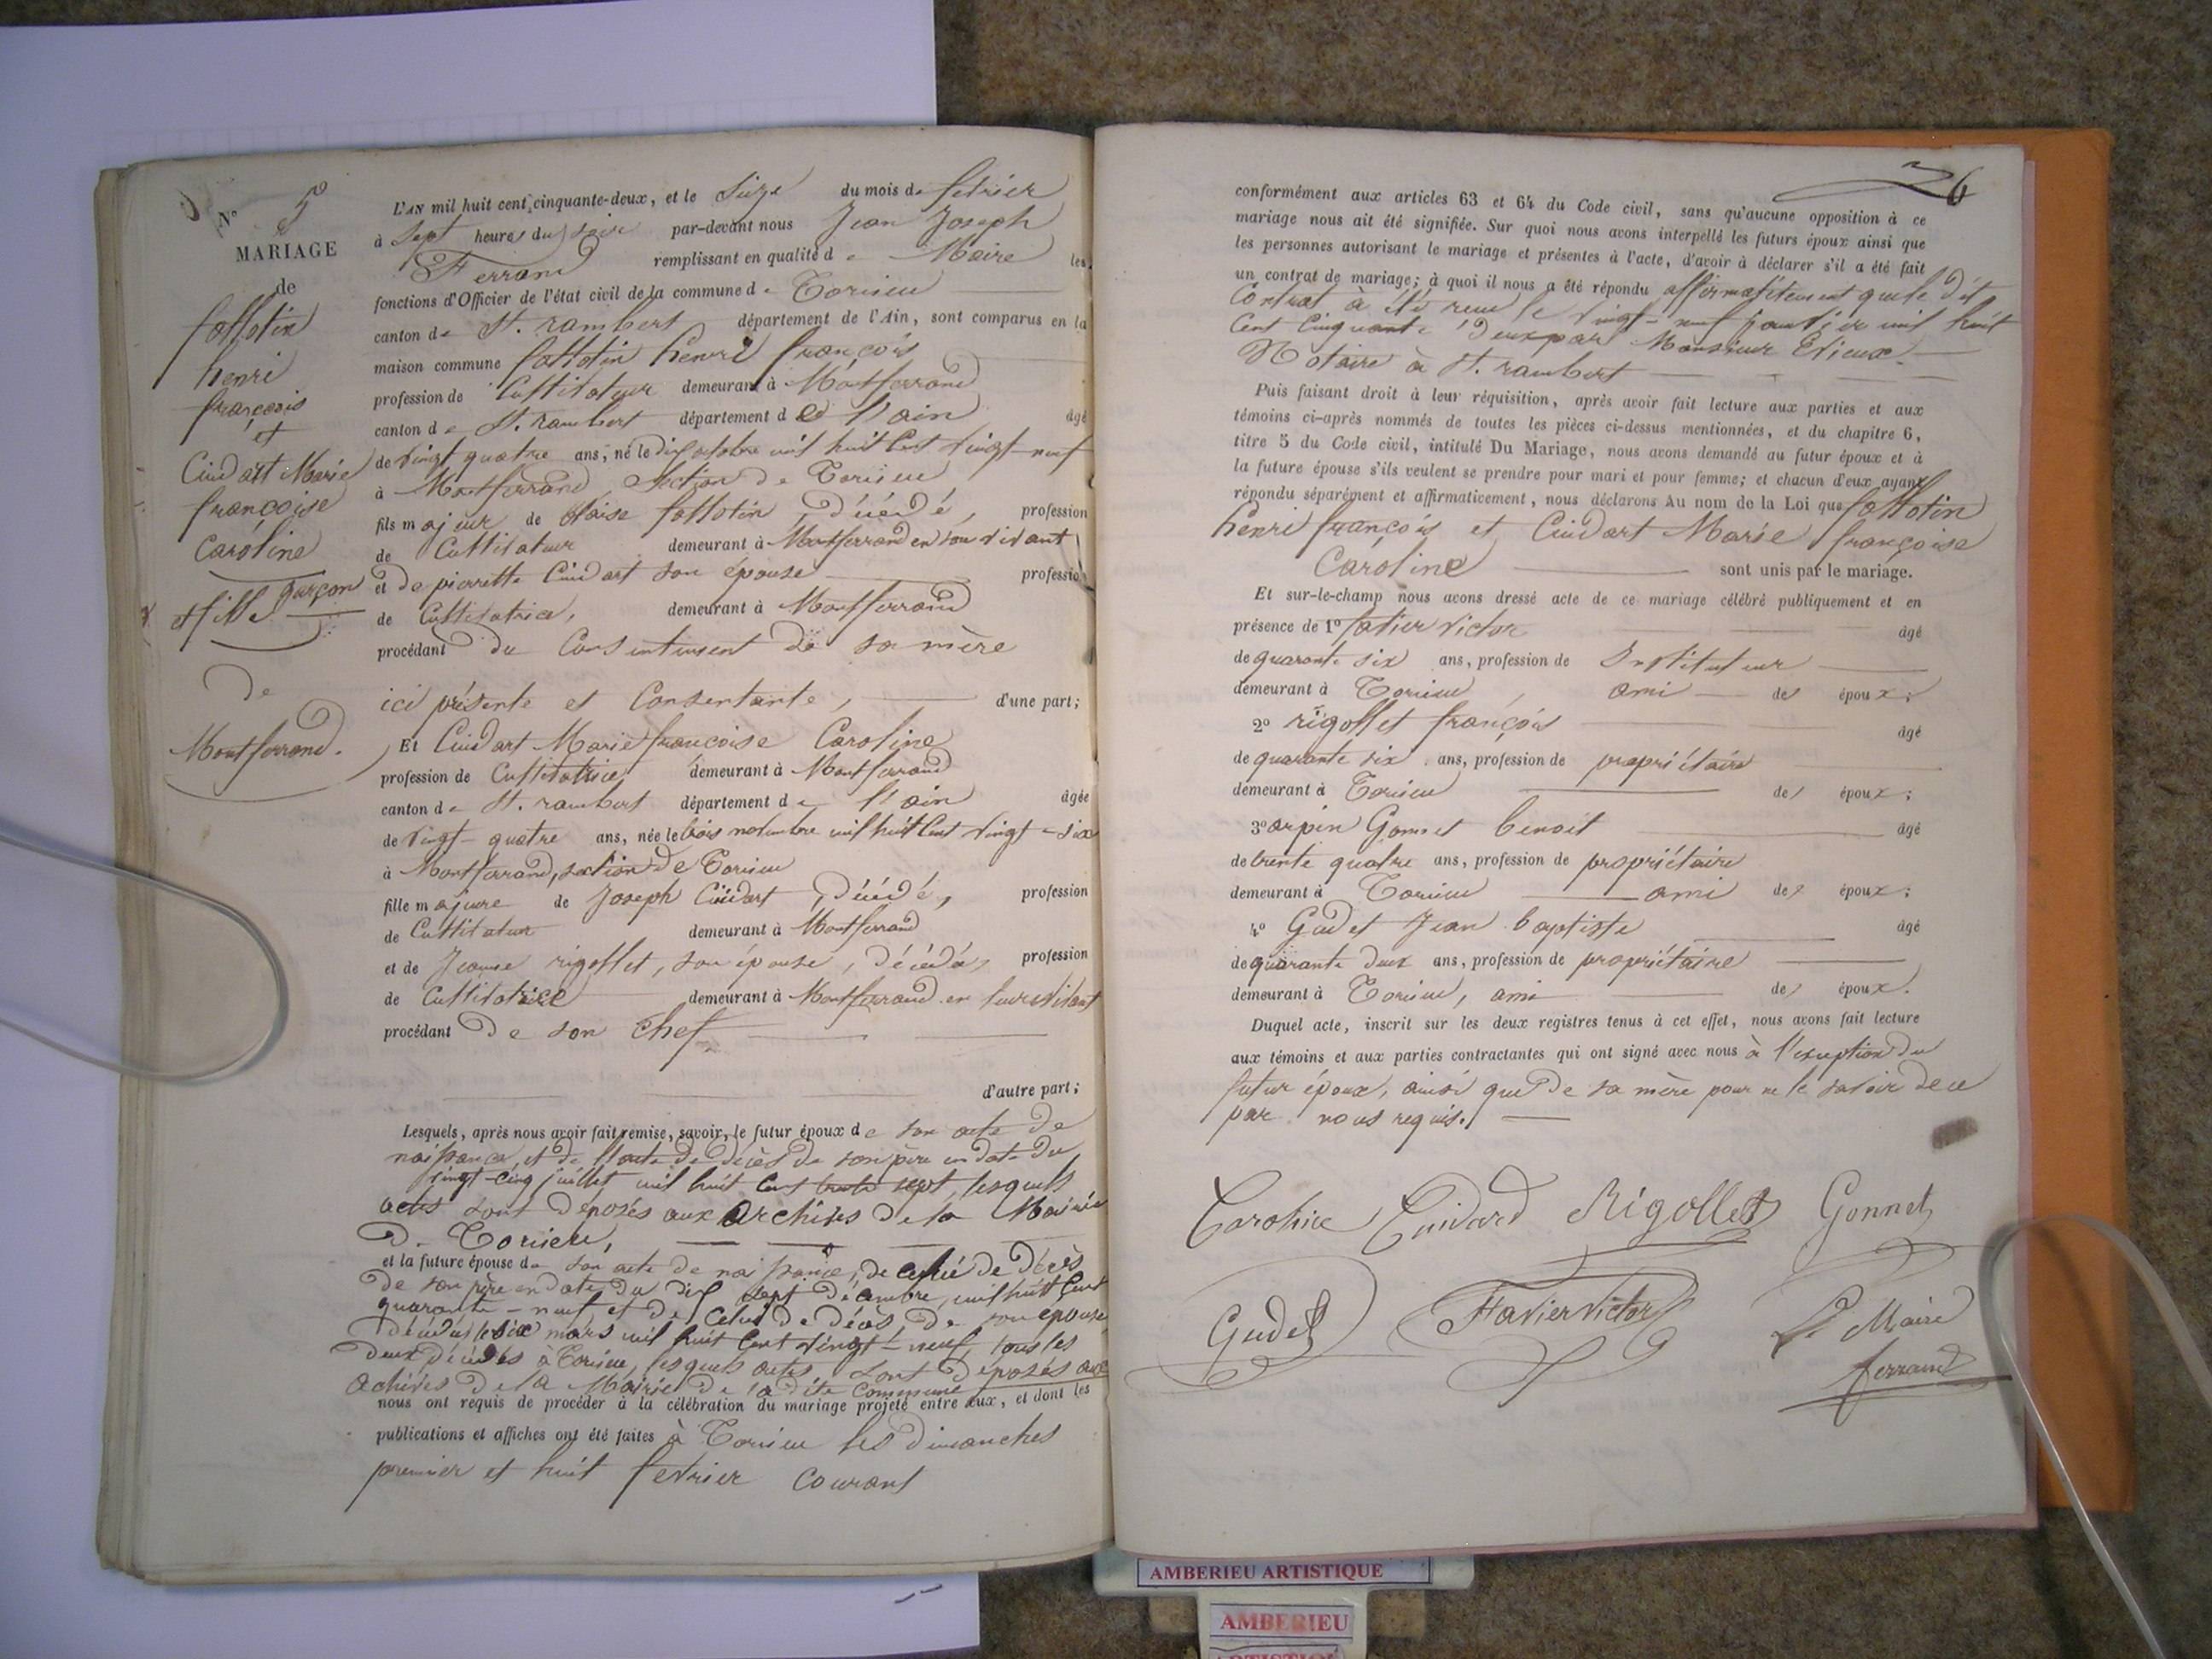 N° 5
MARIAGE
de
fallotin
henri
françois
et
Cuidart Marie
françoise
Caroline
garçon
et fille
De
Montferrand.
L'AN mil huit cent cinquante-deux, et le Seize du mois de fevrier
à Sept heures du soir par-devant nous Jean Joseph
Ferrand remplissant en qualité de Maire les
fonctions d'Officier de l'état civil de la commune de Torcieu
canton de St. rambert département de l'Ain, sont comparus en la
maison commune fallotin henri françois
profession de Cultivateur demeurant à Montferrand
canton de St. rambert département de l'ain âgé
de vingt quatre ans, né le dix octobre mil huit Cent vingt-neuf
à Montferrand Section de Torcieu
fils majeur de blaise fallotin, décédé, profession
de Cultivateur demeurant à Montferrand en son vivant
et de pierrette Cuidart son épouse profession
de Cultivatrice, demeurant à Montferrand
procédant du Consentement de sa mère
ici présente et Consentante, d'une part;
Et Cuidart Marie françoise Caroline
profession de Cultivatrice demeurant à Montferrand
canton de St. rambert département de l'ain âgée
de vingt-quatre ans, née le trois novembre mil huit Cent vingt-six
à Montferrand, section de Torcieu
fille majeure de Joseph Cuidart, décédé, profession
de Cultivateur demeurant à Montferrand
et de Jeanne rigollet, son épouse, décédée, profession
de Cultivatrice demeurant à Montferrand en leur vivant
procédant de son chef
d'autre part;
Lesquels, après nous avoir fait remise, savoir, le futur époux de son acte de
naissance, et de l'acte de décès de son père en date du
vingt-cinq juillet mil huit Cent trente sept, lesquels
actes sont déposés aux archives de la Mairie
de Torcieu,
et la future épouse de son acte de naissance, de celui de décès
de son père en date du dix sept décembre, mil huit Cent
quarante-neuf et de Celui de décès de son épouse
décédée le six mars mil huit Cent vingt-neuf, tous les
deux décédés à Torcieu, lesquels actes sont déposés aux
achives de la Mairie de la dite Commune
nous ont requis de procéder à la célébration du mariage projeté entre eux, et dont les
publications et affiches ont été faites à Torcieu les dimanches
premier et huit fevrier courant
6
conformément aux articles 63 et 64 du Code civil, sans qu'aucune opposition à ce
mariage nous ait été signifiée. Sur quoi nous avons interpellé les futurs époux ainsi que
les personnes autorisant le mariage et présentes à l'acte, d'avoir à déclarer s'il a été fait
un contrat de mariage; à quoi il nous a été répondu affirmativement que le dit
Contrat à été reçu le vingt-neuf janvier mil huit
Cent Cinquante Deux par Monsieur Evieux
Notaire à St. rambert
Puis faisant droit à leur réquisition, après avoir fait lecture aux parties et aux
témoins ci-après nommés de toutes les pièces ci-dessus mentionnées, et du chapitre 6,
titre 5 du Code civil, intitulé Du Mariage, nous avons demandé au futur époux et à
la future épouse s'ils veulent se prendre pour mari et pour femme; et chacun d'eux ayant
répondu séparément et affirmativement, nous déclarons Au nom de la Loi que fallotin
henri françois et Cuidart Marie françoise
Caroline sont unis par le mariage.
Et sur-le-champ nous avons dressé acte de ce mariage célébré publiquement et en
présence de 1° favier victor âgé
de quarante six ans, profession de Instituteur
demeurant à Torcieu, ami des époux;
2° rigollet françois âgé
de quarante six ans, profession de propriétaire
demeurant à Torcieu des époux;
3° arpin Gonnet benoit âgé
de trente quatre ans, profession de propriétaire
demeurant à Torcieu ami des époux;
4° Gudet Jean baptiste âgé
de quarante deux ans, profession de propriétaire
demeurant à Torcieu, ami des époux.
Duquel acte, inscrit sur les deux registres tenus à cet effet, nous avons fait lecture
aux témoins et aux parties contractantes qui ont signé avec nous à l'exception du
futur époux, ainsi que de sa mère pour ne le savoir de ce
par nous requis.
Caroline Cuidard Rigollet Gonnet
Gudet Favier Victor Le Maire
ferrand
AMBERIEU ARTISTIQUE
AMBERIEU
ARTISTIQUE